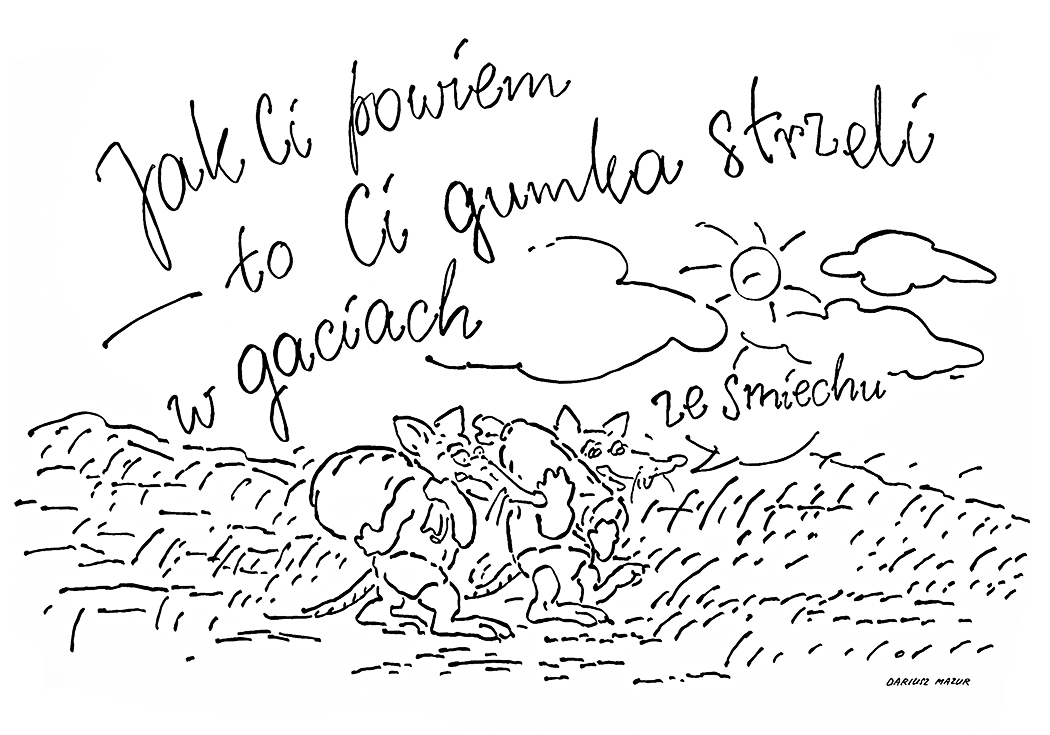 Jak Ci powiem
to Ci gumka strzeli
w gaciach
ze śmiechu
DARIUSZ MAZUR